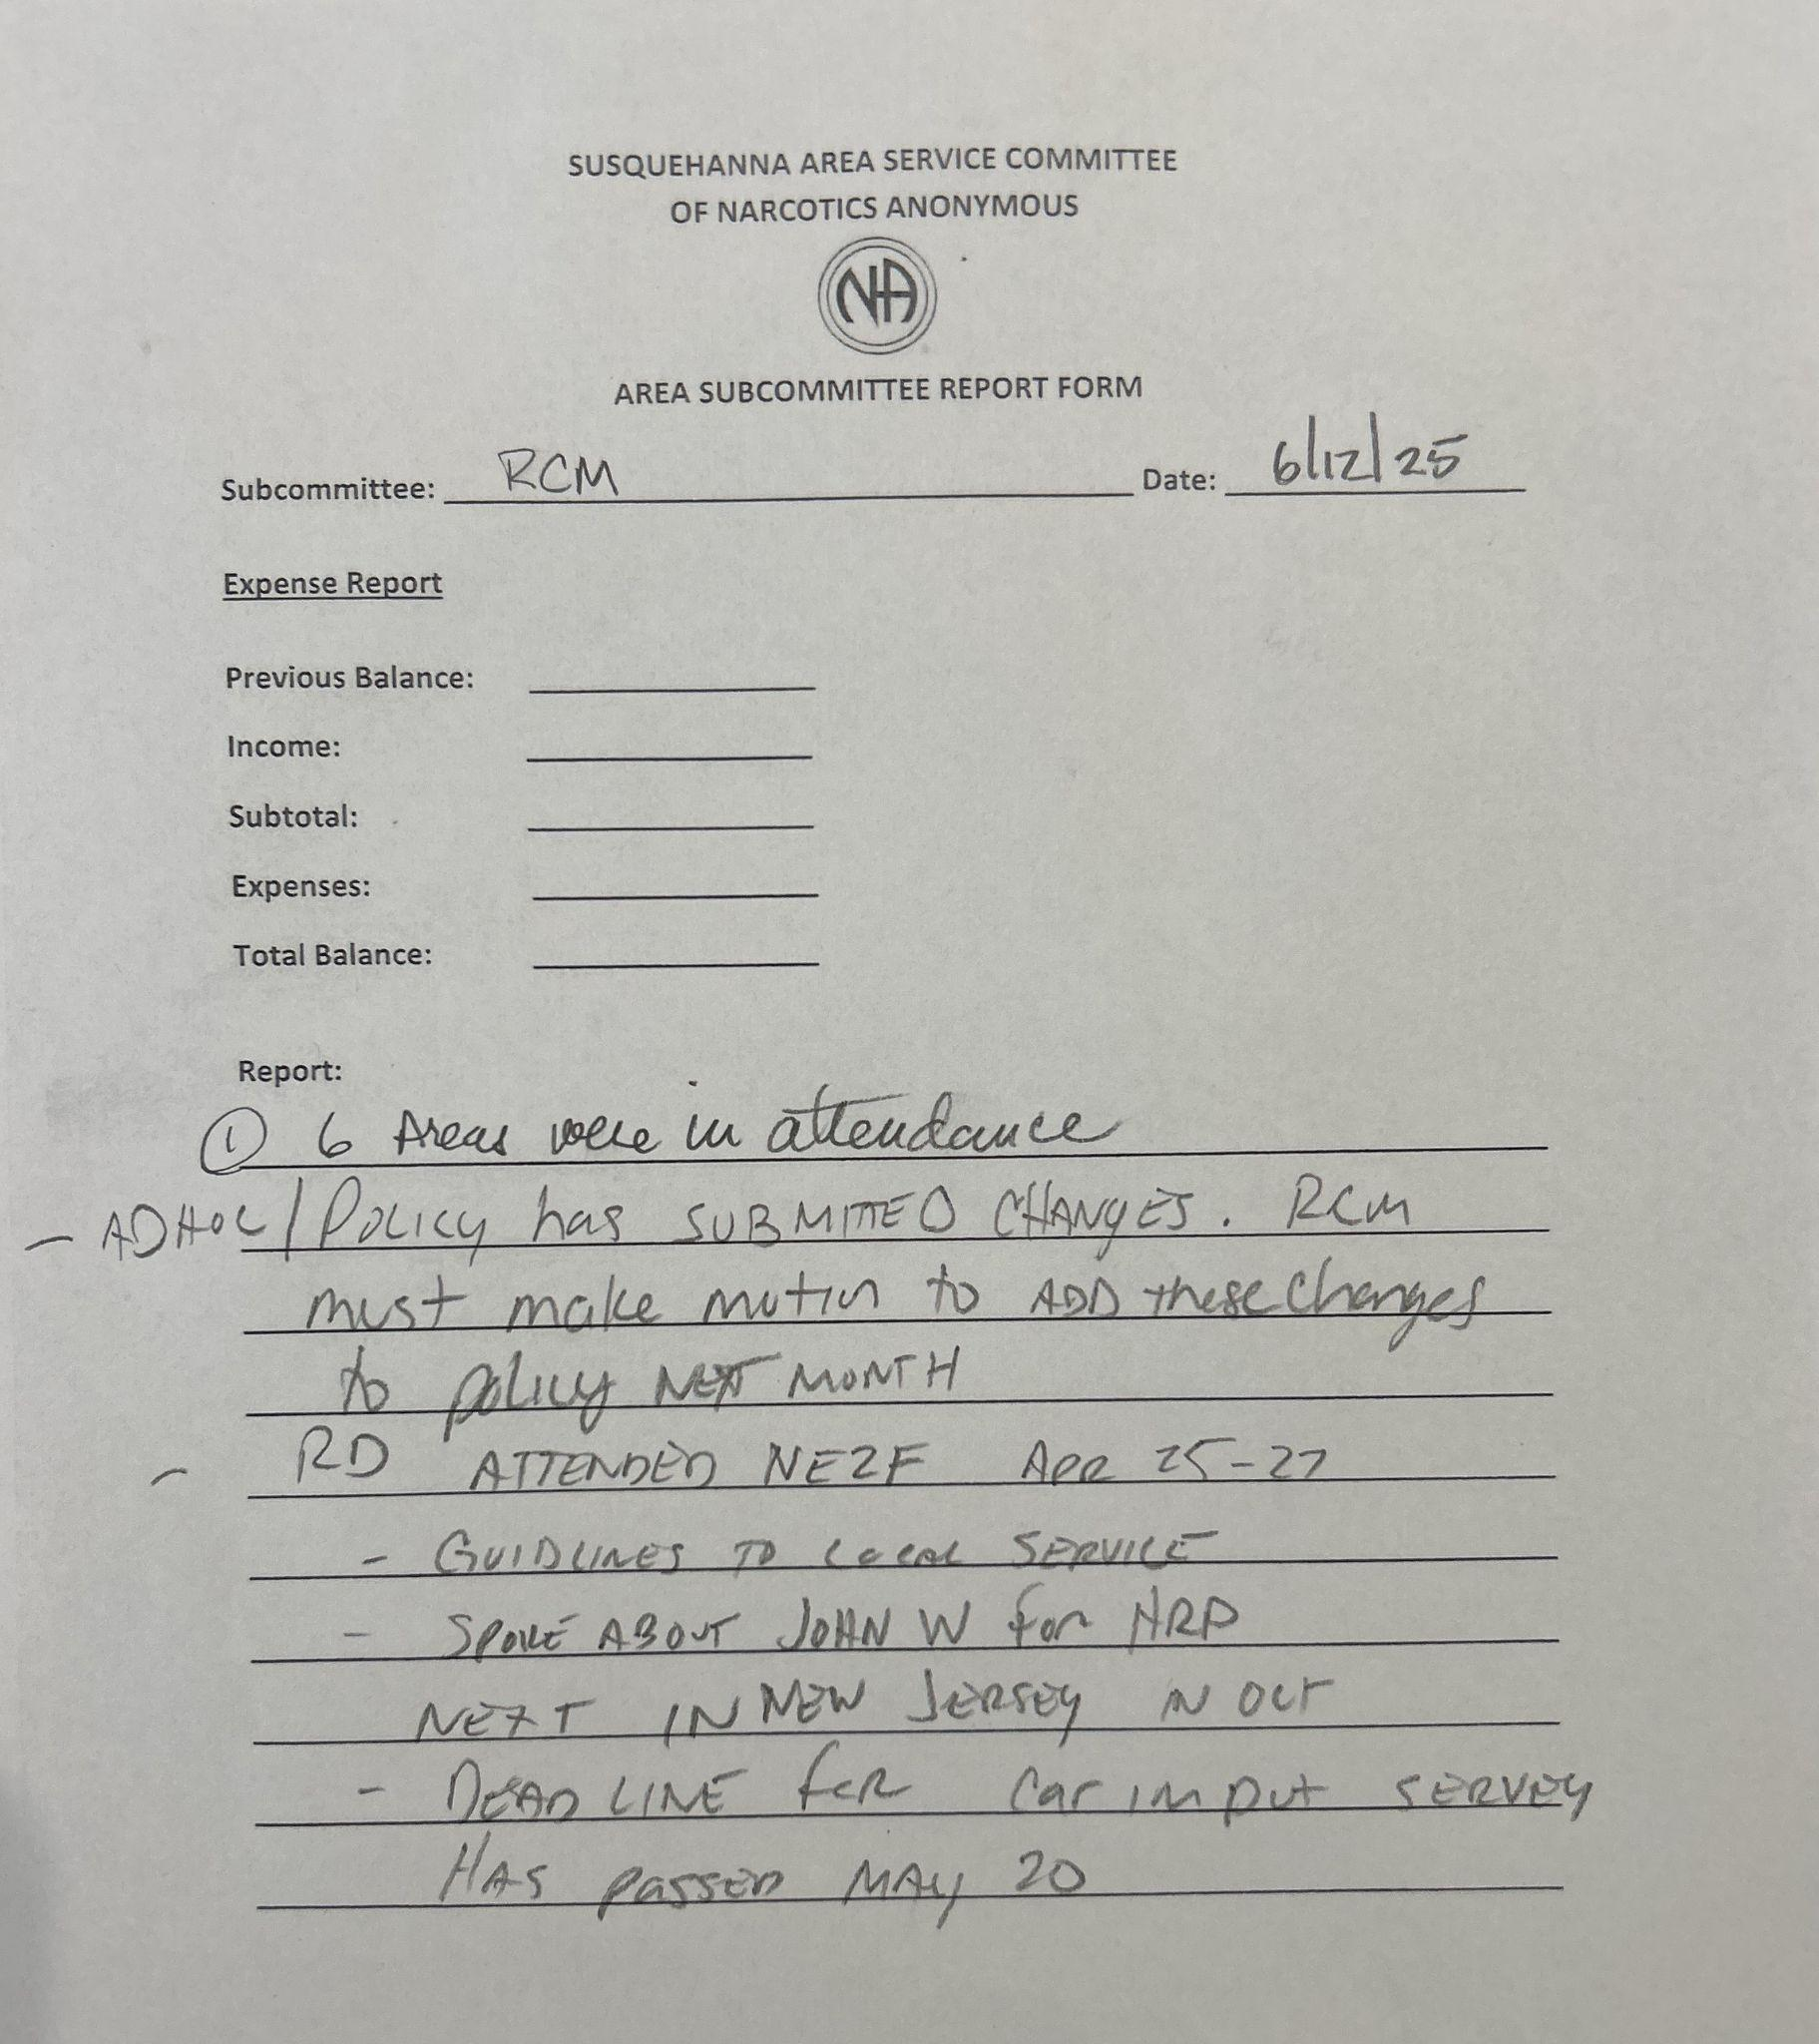 SUSQUEHANNA AREA SERVICE COMMITTEE
OF NARCOTICS ANONYMOUS
NA
AREA SUBCOMMITTEE REPORT FORM
Subcommittee: RCM Date: 6/12/25
Expense Report
Previous Balance:
Income:
Subtotal:
Expenses:
Total Balance:
Report:
① 6 Areas were in attendance
- ADHOC/Policy has SUBMITTED CHANGES. RCM
must make motion to ADD these changes
to policy NEXT MONTH
- RD ATTENDED NEZF APR 25-27
- GUIDLINES TO LOCAL SERVICE
- SPOKE ABOUT JOHN W for HRP
NEXT IN NEW JERSEY IN OCT
- DEADLINE for Car input SERVEY
HAS passed MAY 20